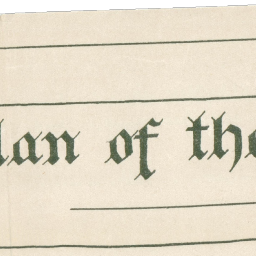 lan of the